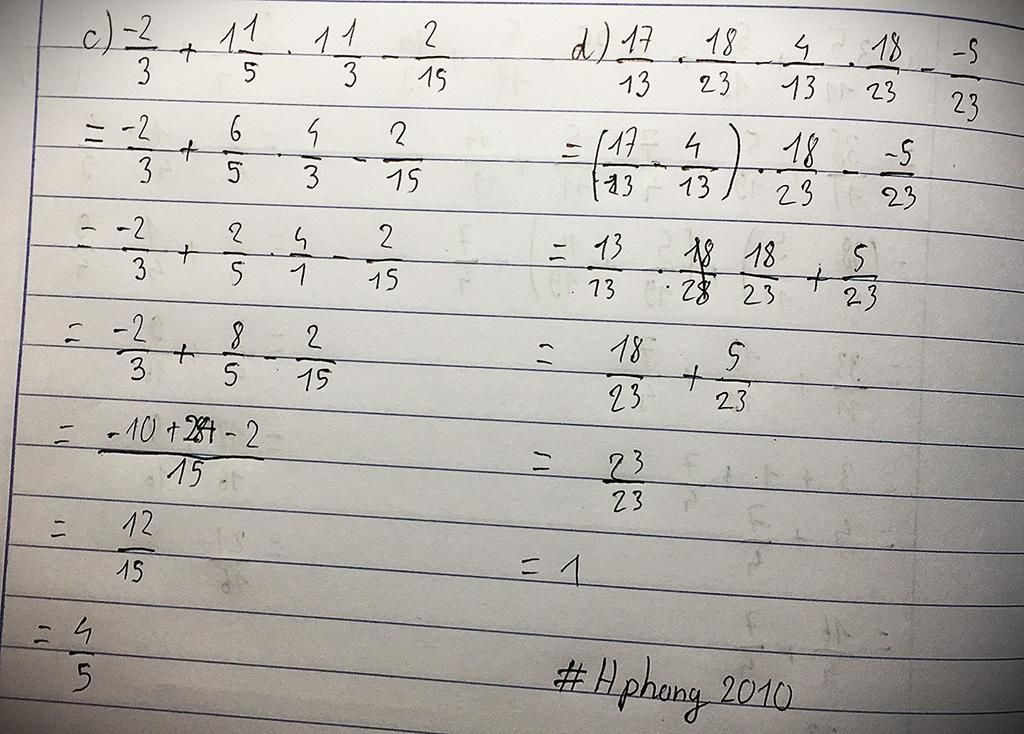 c) -2/3 + 1 1/5 . 1 1/3 - 2/15
= -2/3 + 6/5 . 4/3 - 2/15
= -2/3 + 2/5 . 4/1 - 2/15
= -2/3 + 8/5 - 2/15
= (-10 + 24 - 2)/15
= 12/15
= 4/5
d) 17/13 . 18/23 - 4/13 . 18/23 - -5/23
= (17/13 - 4/13) . 18/23 - -5/23
= 13/13 . 18/23 + 5/23
= 18/23 + 5/23
= 23/23
= 1
# Hphang 2010